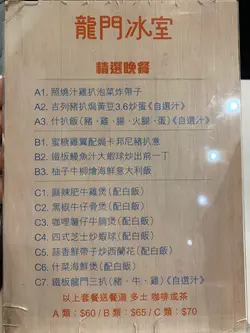 龍門冰室
精選晚餐
A1. 照燒汁雞扒泡菜炸帶子
A2. 吉列豬扒焗黃豆3.6炒蛋《自選汁》
A3. 什扒飯(豬、雞、腸、火腿、蛋)《自選汁》
B1. 蜜糖雞翼配焗卡邦尼豬扒意
B2. 鐵板鰻魚汁大蝦球炒出前一丁
B3. 柚子牛柳燴海鮮意大利飯
C1. 麻辣肥牛雞煲(配白飯)
C2. 黑椒牛仔骨煲(配白飯)
C3. 咖哩薯仔牛腩煲(配白飯)
C4. 四式芝士炒蝦球(配白飯)
C5. 蒜香鮮帶子炒西蘭花(配白飯)
C6. 什菜海鮮煲(配白飯)
C7. 鐵板龍門三扒(豬、牛、雞)《自選汁》
以上套餐送餐湯 多士 咖啡或茶
A 類：$60 / B 類：$65 / C 類：$70